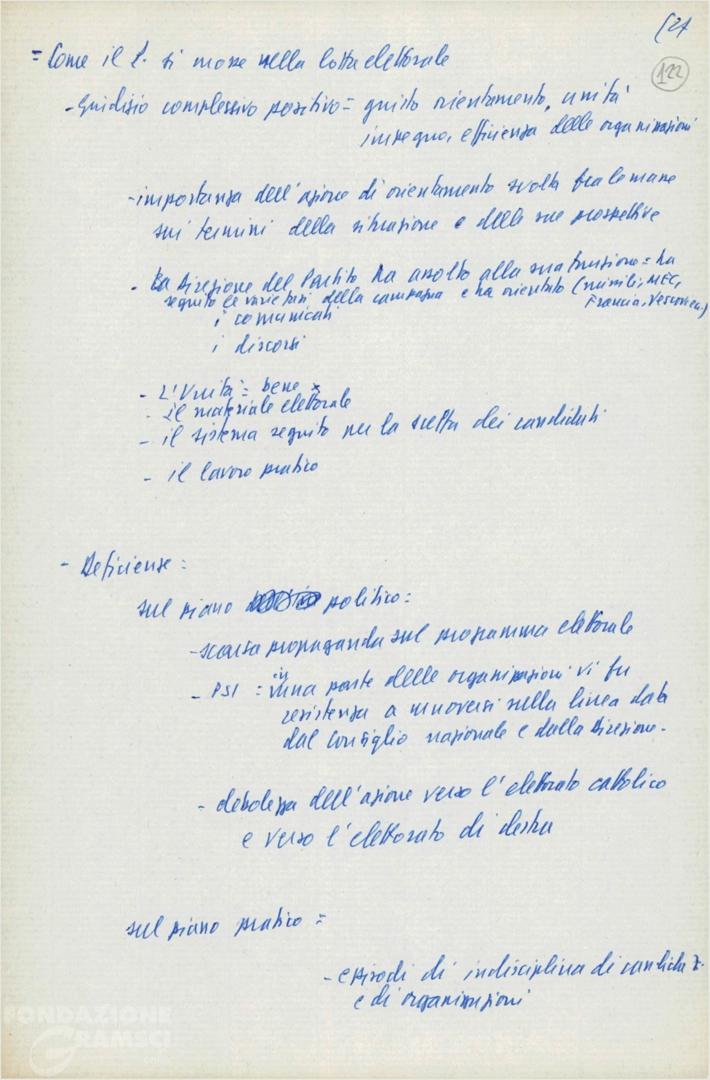 (24
122
= Come il P. si mosse nella lotta elettorale
- Giudizio complessivo positivo = giusto orientamento, unità
impegno, efficienza delle organizzazioni
- importanza dell'azione di orientamento svolta tra le masse
sui termini della situazione e delle sue prospettive
- La Direzione del Partito ha assolto alla sua funzione = ha
seguito le variazioni della campagna e ha orientato (missili, MEC,
Francia, Vescovi)
i comunicati
i discorsi
- L'Unità = bene
- il materiale elettorale
- il sistema seguito per la scelta dei candidati
- il lavoro pratico
- Deficienze:
sul piano politico:
- scarsa propaganda sul programma elettorale
- PSI = in una parte delle organizzazioni vi fu
resistenza a muoversi sulla linea data
dal Consiglio nazionale e dalla Direzione.
- debolezza dell'azione verso l'elettorato cattolico
e verso l'elettorato di destra
sul piano pratico =
- episodi di indisciplina di candidati
e di organizzazioni
FONDAZIONE
GRAMSCI